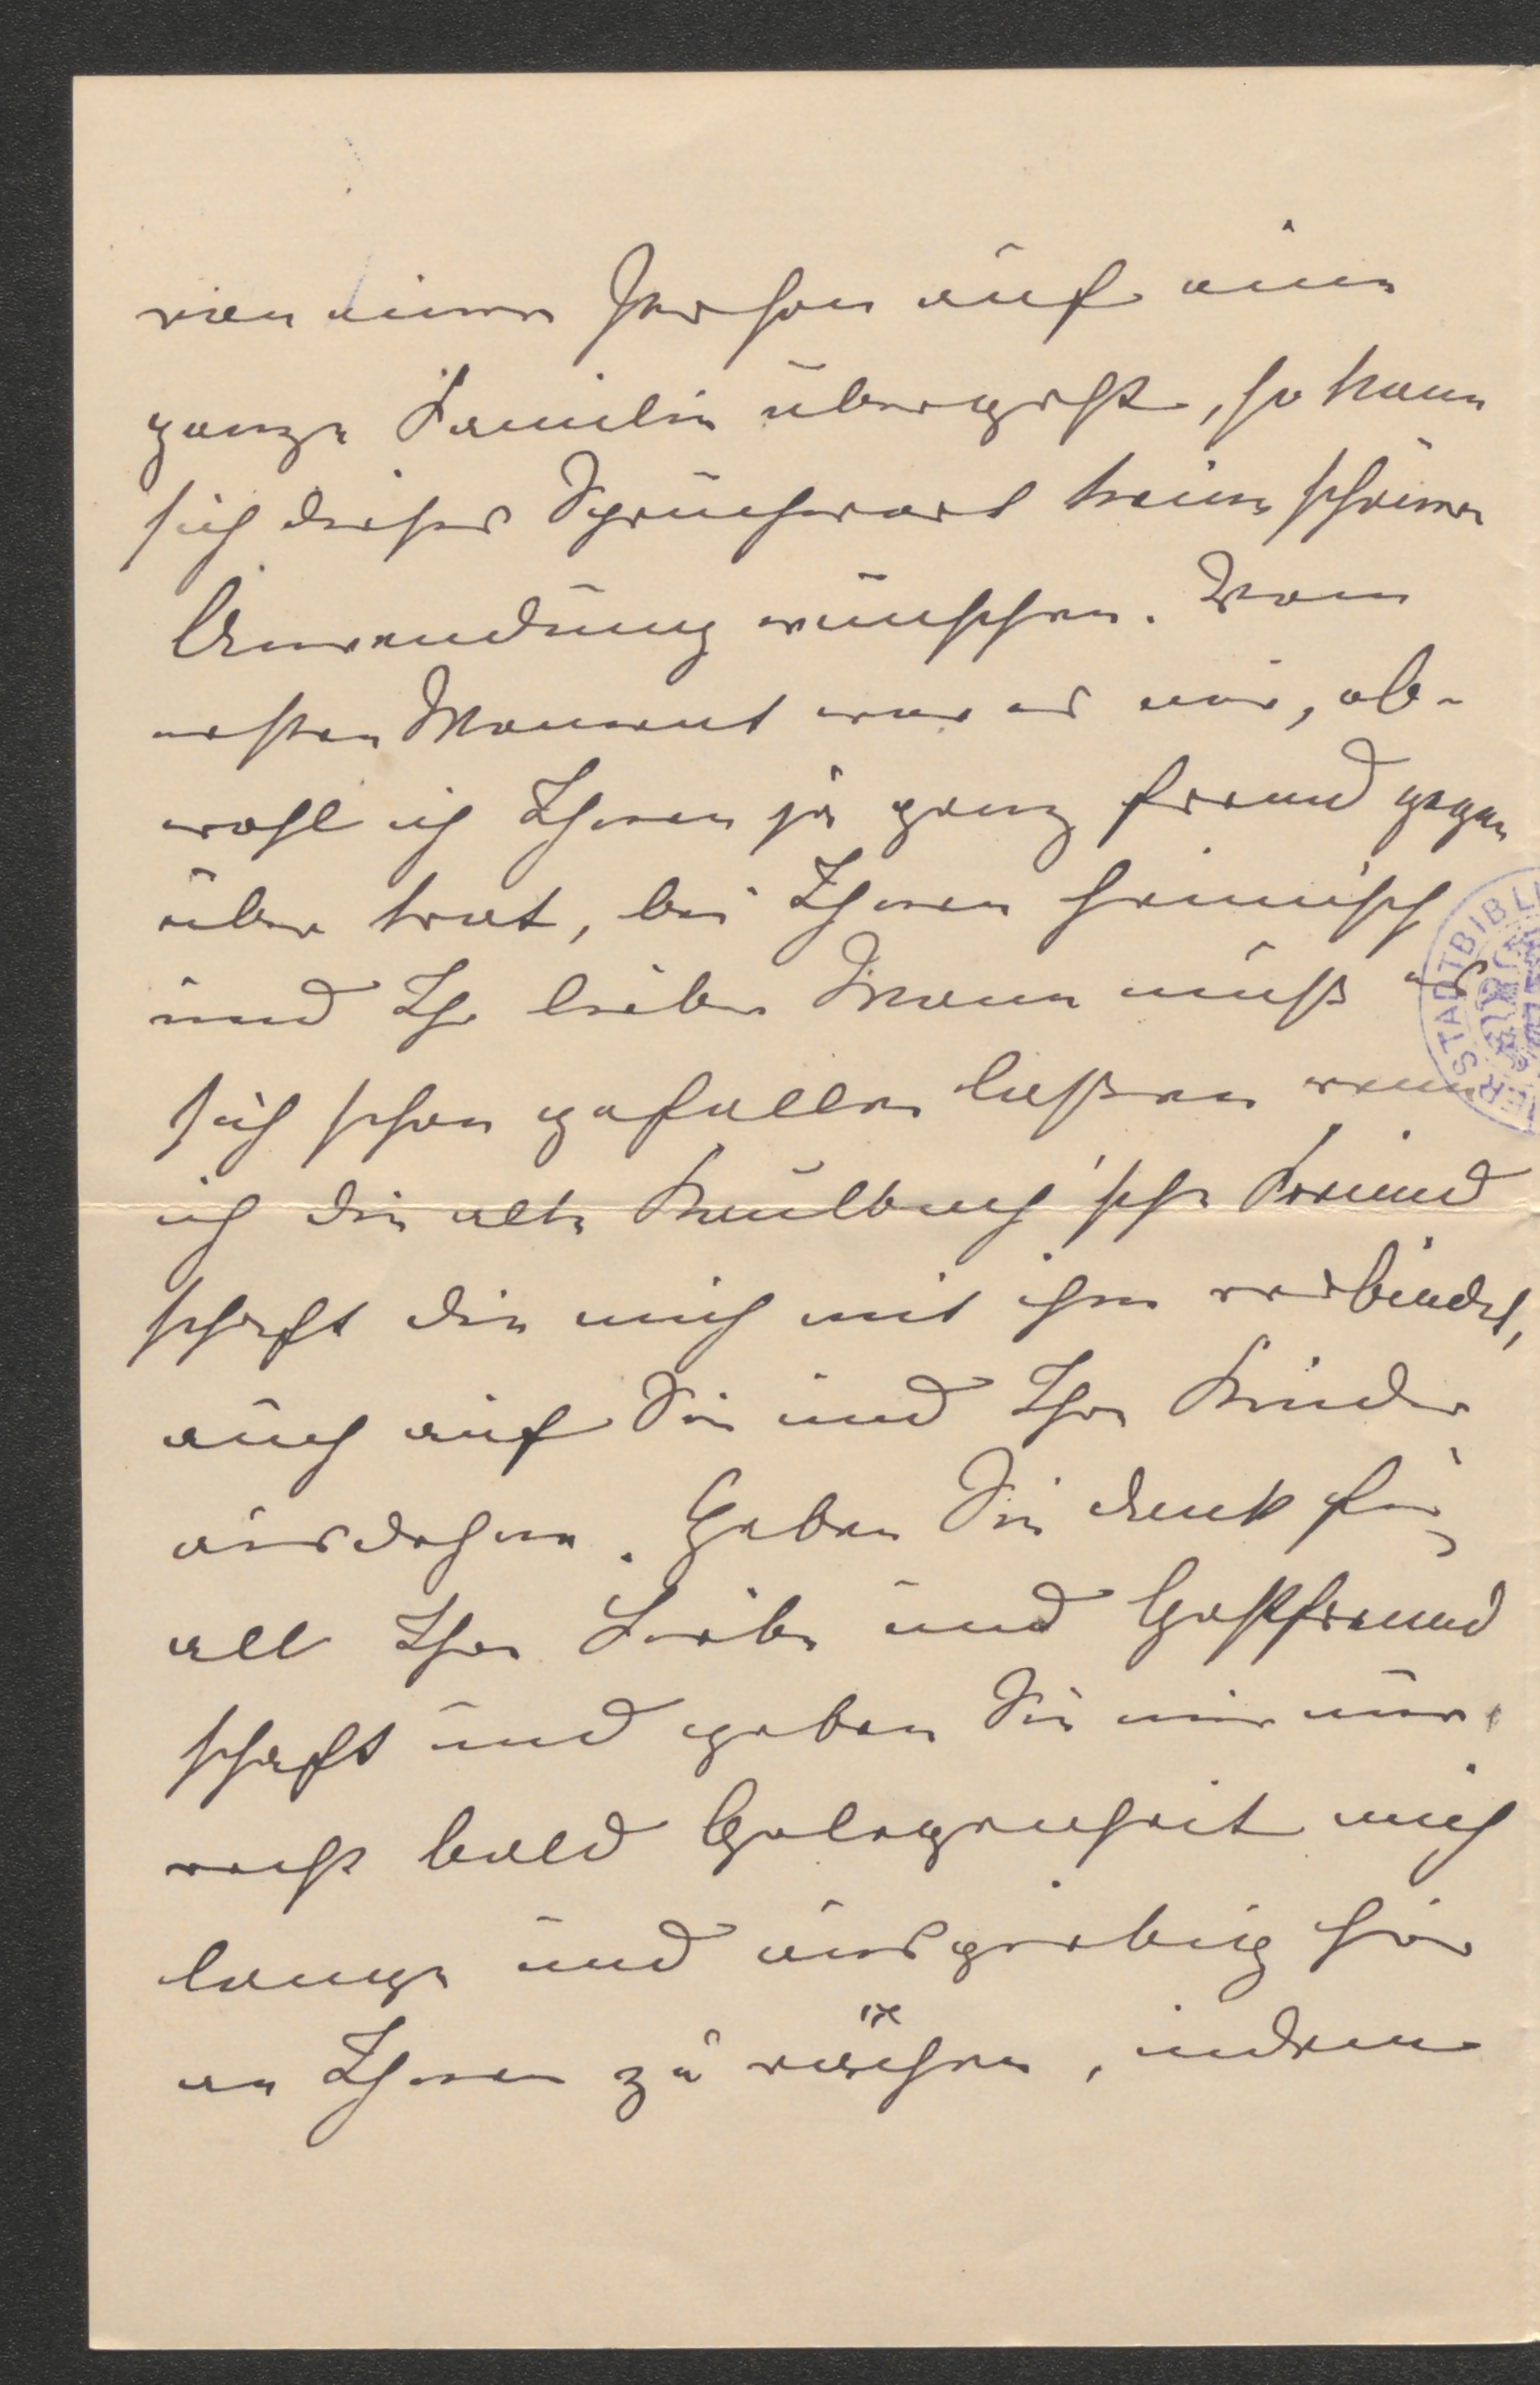 von einer Person auf eine
ganze Familie übergeht, so kann
sich dieses Sprüchwort keine schönere
Anwendung wünschen. Vom
ersten Moment war es mir, ob-
wohl ich Ihnen ja ganz fremd gegen
über trat, bei Ihnen heimisch
und Ihr lieber Mann muß es
sich schon gefallen laßen wenn
ich die alte Kaulbach'sche Freund
schaft die mich mit ihm verbindet,
auch auf Sie und Ihre Kinder
ausdehne. Haben Sie Dank für
all Ihre Liebe und Gastfreund
schaft und geben Sie mir nur
recht bald Gelegenheit mich
lange und ausgiebig hier
an Ihnen zu rächen, indem
STADTBIBLI